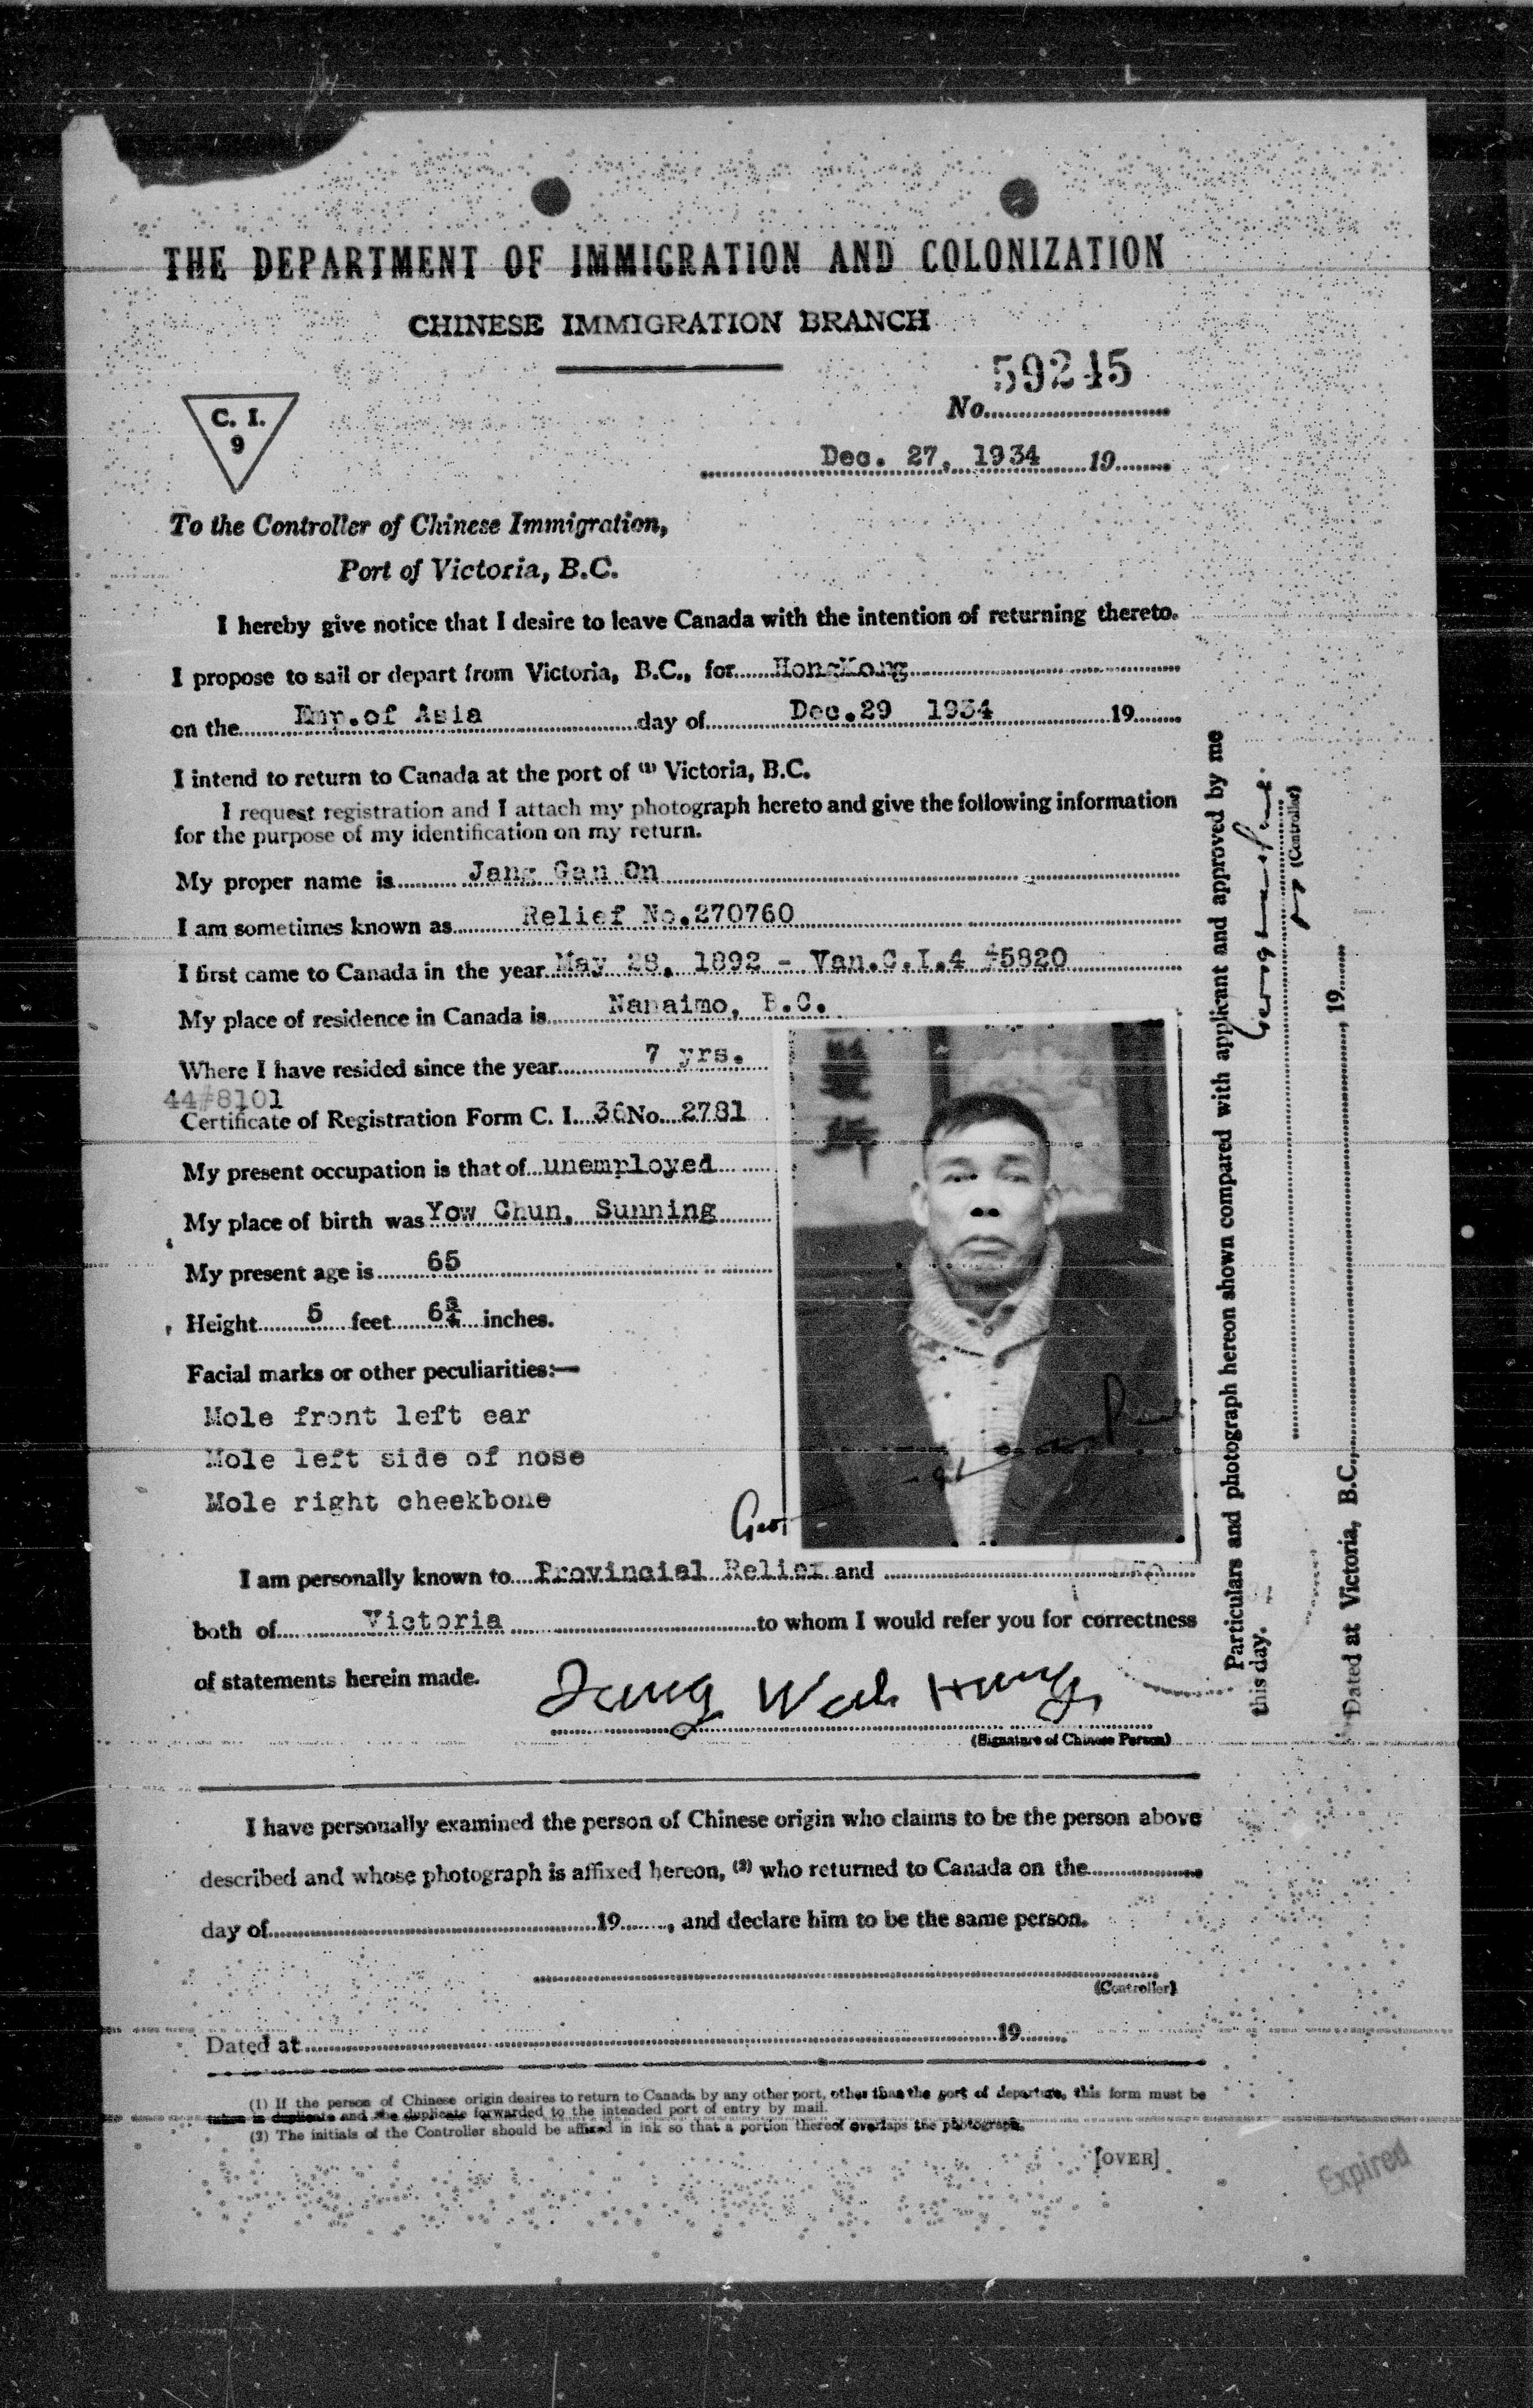 THE DEPARTMENT OF IMMIGRATION AND COLONIZATION
CHINESE IMMIGRATION BRANCH
59245
No.
C. I.
9
Dec. 27, 1934 19
To the Controller of Chinese Immigration,
Port of Victoria, B.C.
I hereby give notice that I desire to leave Canada with the intention of returning thereto.
I propose to sail or depart from Victoria, B.C., for HongKong
on the Emp.of Asia day of Dec.29 1934 19
I intend to return to Canada at the port of (1) Victoria, B.C.
I request registration and I attach my photograph hereto and give the following information
for the purpose of my identification on my return.
My proper name is Jang Gan On
I am sometimes known as Relief No.270760
I first came to Canada in the year May 28, 1892 - Van.C.I.4 #5820
My place of residence in Canada is Nanaimo, B.C.
Where I have resided since the year 7 yrs.
44#8101
Certificate of Registration Form C. I. 36 No. 2781
My present occupation is that of unemployed
My place of birth was Yow Chun, Sunning
My present age is 65
Height 5 feet 6¾ inches.
Facial marks or other peculiarities:—
Mole front left ear
Mole left side of nose
Mole right cheekbone
I am personally known to Provincial Relief and
both of Victoria to whom I would refer you for correctness
of statements herein made.
Jang Wah Hung
(Signature of Chinese Person)
I have personally examined the person of Chinese origin who claims to be the person above
described and whose photograph is affixed hereon, (2) who returned to Canada on the
day of 19, and declare him to be the same person.
(Controller)
Dated at 19
(1) If the person of Chinese origin desires to return to Canada by any other port, other than the port of departure, this form must be
taken in duplicate and the duplicate forwarded to the intended port of entry by mail.
(2) The initials of the Controller should be affixed in ink so that a portion thereof overlaps the photograph.
[OVER]
Expired
Particulars and photograph hereon shown compared with applicant and approved by me
this day.
(Controller)
Dated at Victoria, B.C., 19